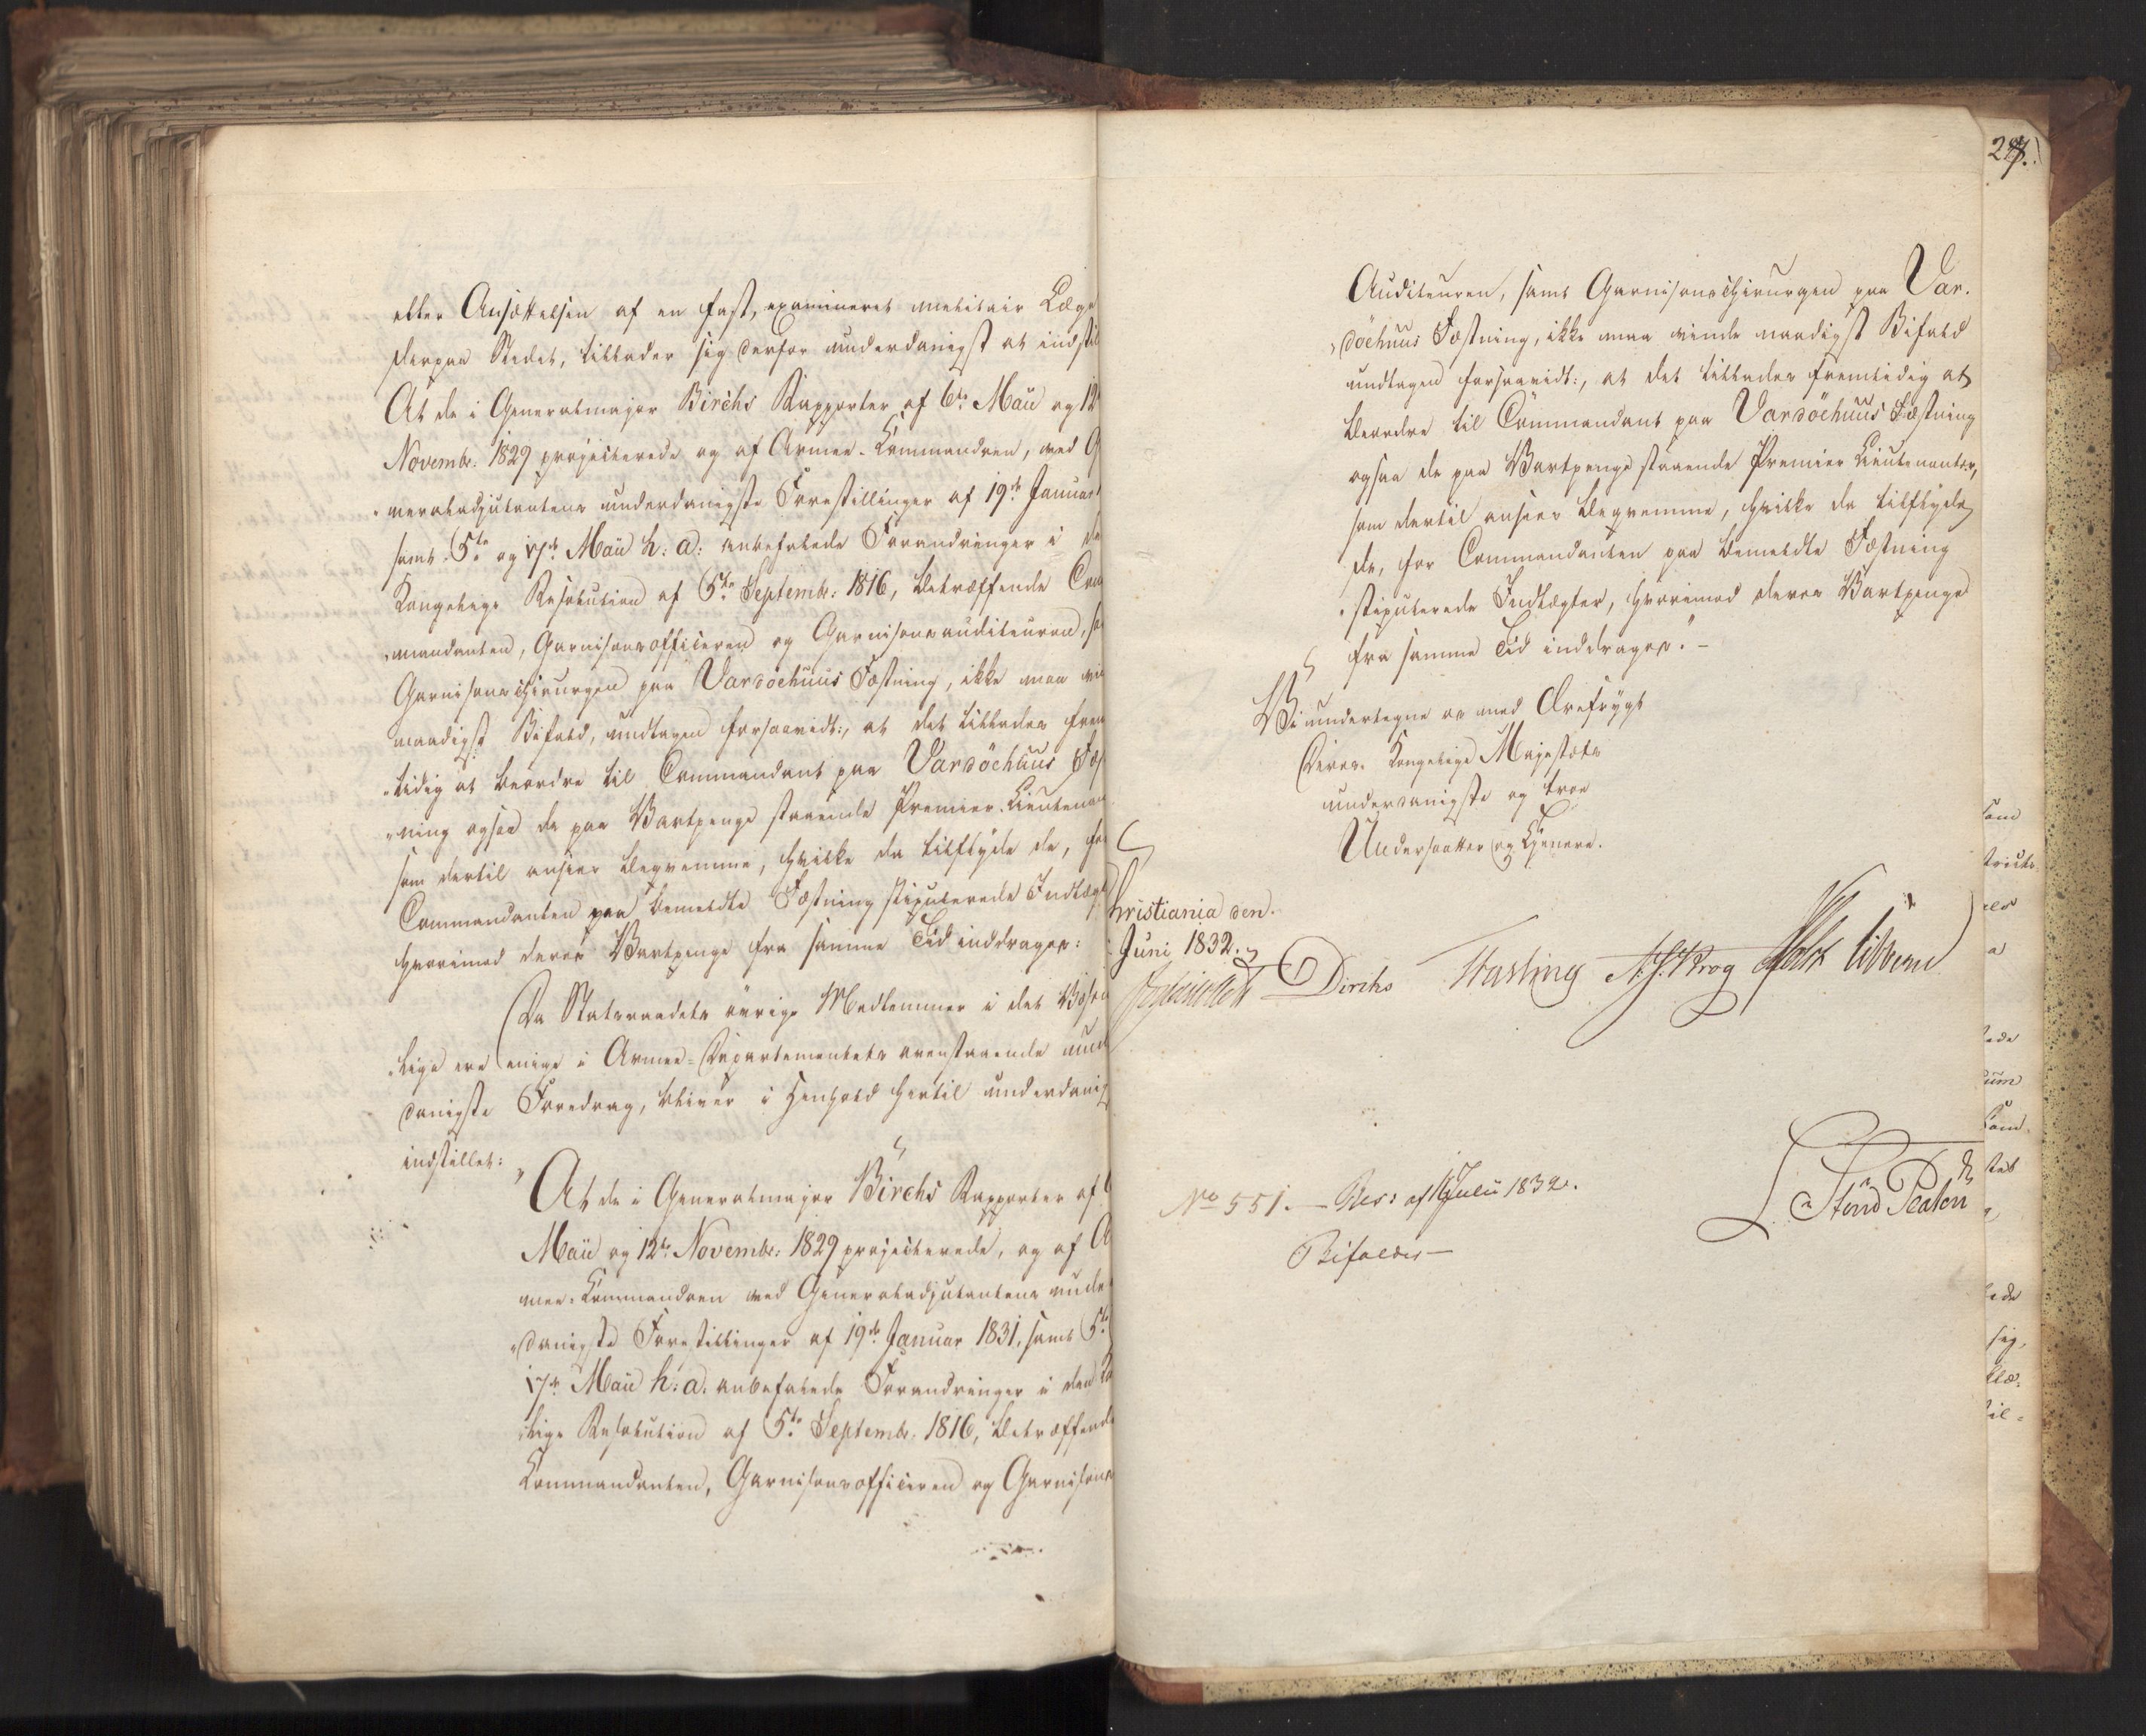 eller Ansættelsen af en fast, examineret militair Læge
derpaa Stedet, tillader sig derfor underdanigst at indstil
At de i Generalmajor Birchs Rapporter af 6te Maii og 12
Novembr: 1829 projecterede og af Armee-Kommandoen, ved G
neraladjutantens underdanigste Forestillinger af 19de Januar
samt 5te og 17de Maii h: a: anbefalede Forandringer i de
Kongelige Resolution af 5te Septembr: 1816, betræffende Com
mandanten, Garnisonsofficeren og Garnisonsauditeuren, sa
Garnisonschirurgen paa Vardöehuus Fæstning, ikke maa vin
naadigst Bifald, undtagen forsaavidt:, at det tillades frem
tidig at beordre til Commandant paa Vardöehuus Fæst
ning ogsaa de paa Vartpenge staaende Premier-Lieutenan
som dertil ansees beqvemme, hvilke da tilflyde de, for
Commandanten paa bemeldte Fæstning stipulerede Indtægt
hvorimod deres Vartpenge fra samme Tid inddrages:
Da Statsraadets øvrige Medlemmer i det Væsen
lige ere enige i Armee-Departementets ovenstaaende und
danigste Foredrag, bliver i Henhold hertil underdanig
indstillet:
"At de i Generalmajor Birchs Rapporter af 6
Maii og 12te Novembr: 1829 projecterede, og af A
mee-Kommandoen ved Generaladjutantens under
danigste Forestillinger af 19de Januar 1831, samt 5te
17de Maii h: a. anbefalede Forandringer i den Ko
lige Resolution af 5te Septembr. 1816, betræffende
Kommandanten, Garnisonsofficeren og Garnisons
Auditeuren, samt Garnisonschirurgen paa Var-
döehuus Fæstning, ikke maa vinde naadigst Bifald
undtagen forsaavidt:, at det tillades fremtidig at
beordre til Commandant paa Vardöehuus Fæstning
ogsaa de paa Vartpenge staaende Premier Lieutenanter,
som dertil ansees beqvemme, hvilke da tilflyde
de, for Commandanten paa bemeldte Fæstning
stipulerede Indtægter, hvorimod deres Vartpenge
fra samme Tid inddrages." -
Vi undertegne os med Ærefrygt
Deres Kongelige Majestæts
underdanigste og troe
Undersaatter og Tjenere.
Christiania den
Juni 1832.
Diriks Fasting N. J. Krog Holst Vibe
No 551. - Res: af 11 Julii 1832.
Bifaldes -